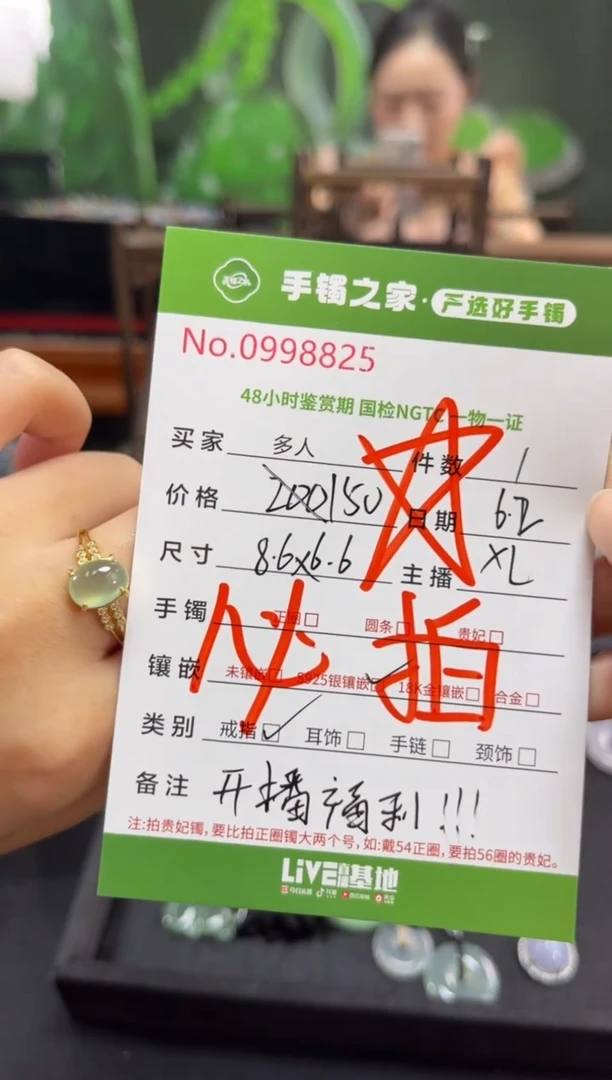 手镯之家·严选好手镯
No.0998825
48小时鉴赏期 国检NGTC一物一证
买家 多人 件数 1
价格 200 150 日期 6.2
尺寸 8.6x6.6 主播 XL
手镯 正圈 圆条 贵妃
镶嵌 未镶嵌 S925银镶嵌 18K金镶嵌 合金
类别 戒指 耳饰 手链 颈饰
必拍
备注 开播福利!!!
注:拍贵妃镯,要比拍正圈镯大两个号,如:戴54正圈,要拍56圈的贵妃。
LiVE直播基地
今日头条 抖音